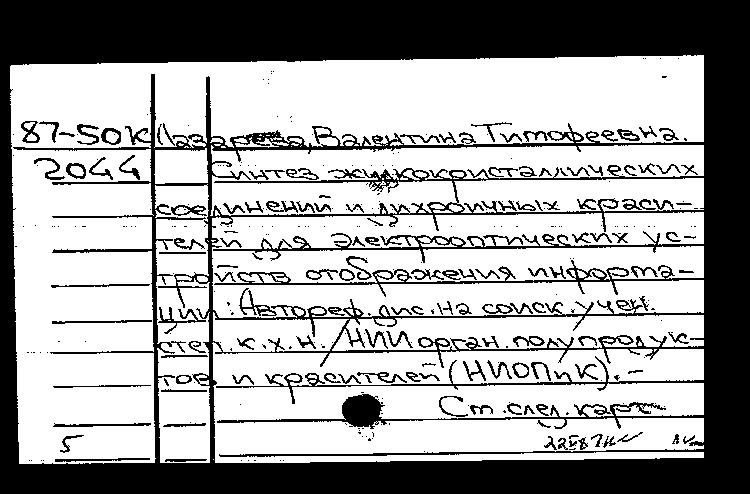 87-50к Лазарева, Валентина Тимофеевна.
2044 Синтез жидкокристаллических
соединений и дихроичных краси-
телей для электрооптических ус-
тройств отображения информа-
ции: Автореф. дис. на соиск. учен.
степ. к.х.н. / НИИ орган. полупродук-
тов и красителей (НИОПиК). –
См. след. карт
5